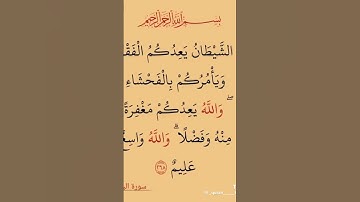 بِسْمِ اللَّهِ الرَّحْمَٰنِ الرَّحِيمِ
الشَّيْطَانُ يَعِدُكُمُ الْفَقْ
وَيَأْمُرُكُمْ بِالْفَحْشَاءِ
ۖ وَاللَّهُ يَعِدُكُمْ مَغْفِرَةً
مِنْهُ وَفَضْلًا ۗ وَاللَّهُ وَاسِعٌ
عَلِيمٌ ٢٦٨
سورة